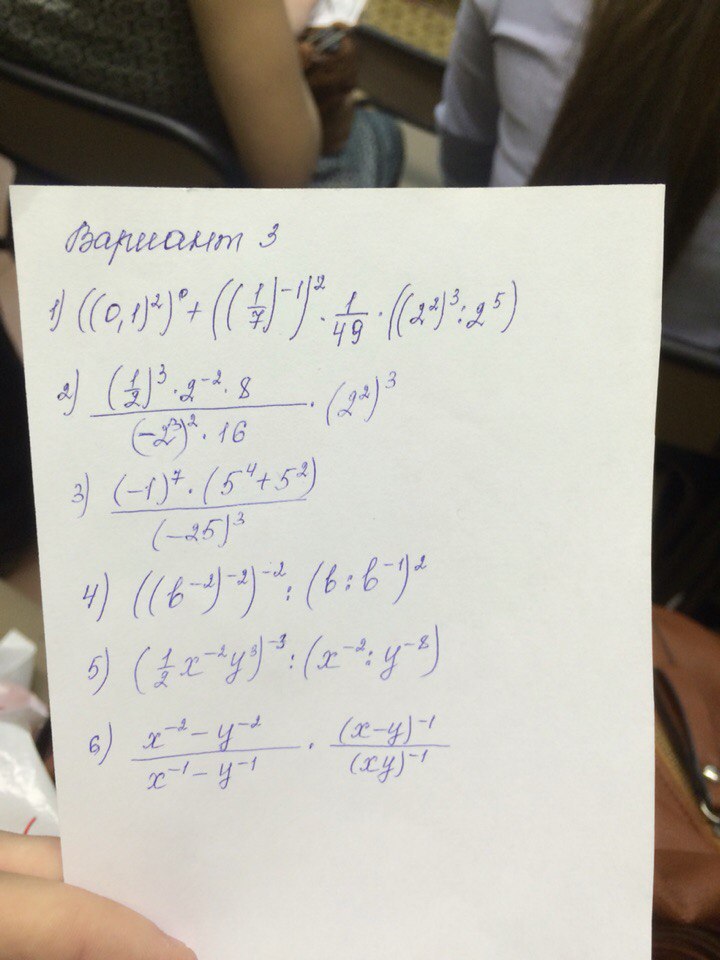 Вариант 3
1) ((0,1)²)⁰ + ((1/7)⁻¹)² · 1/49 · ((2²)³ : 2⁵)
2) ((1/2)³ · 2⁻² · 8) / ((-2³)² · 16) · (2²)³
3) ((-1)⁷ · (5⁴ + 5²)) / (-25)³
4) ((b⁻²)⁻²)⁻² : (b : b⁻¹)²
5) (1/2 x⁻²y³)⁻³ : (x⁻² : y⁻⁸)
6) (x⁻² - y⁻²) / (x⁻¹ - y⁻¹) · (x-y)⁻¹ / (xy)⁻¹